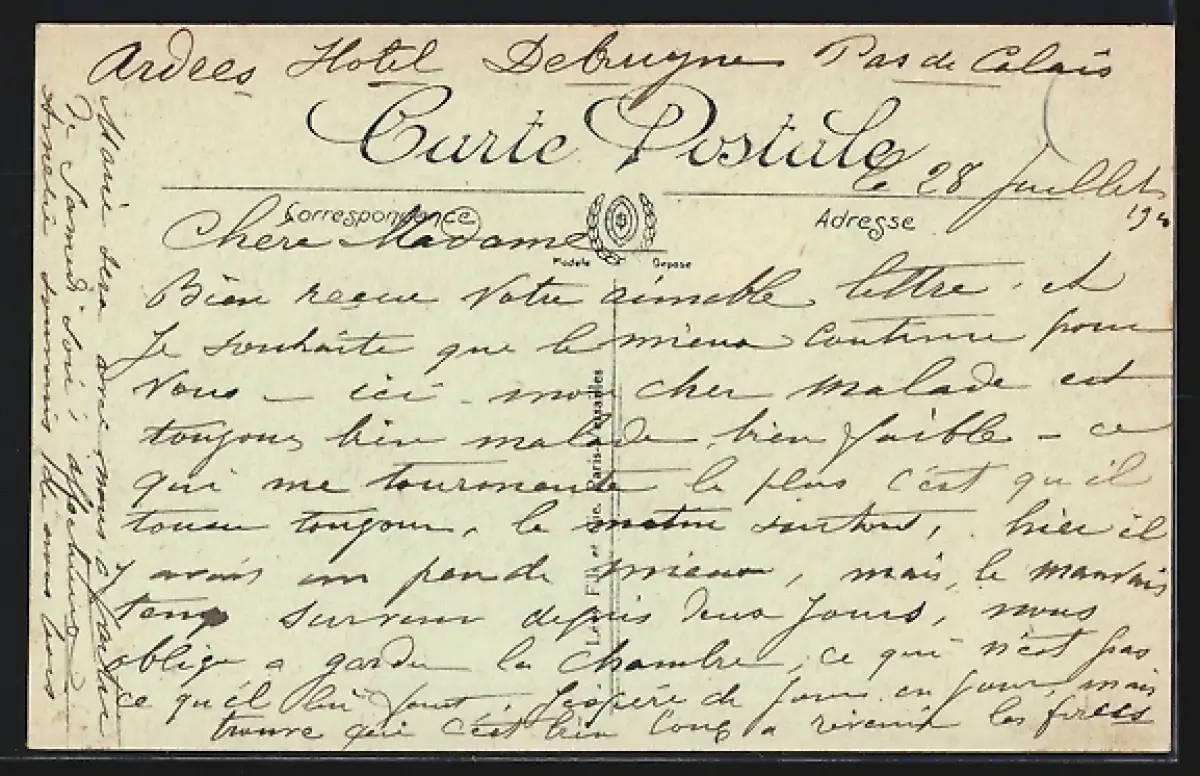 Ardres Hotel Debruyne Pas de Calais
Carte Postale
le 28 Juillet
19
Correspondance
Adresse
Modèle Déposé
Chère Madame
Bien reçue votre aimable lettre, et
Je souhaite que le mieux continue pour
vous – ici – mon cher malade est
toujours bien malade, bien faible – ce
qui me tourmente le plus c'est qu'il
tousse toujours, le matin surtout, hier il
y avait un peu de mieux, mais, le mauvais
temps survenu depuis deux jours, nous
oblige a garder la chambre, ce qui n'est pas
ce qu'il lui faut. J'espère de jour en jour, mais
trouve que c'est bien long a revenir les forces
Marie sera avec nous a partir
de Samedi soir; affectueux
Amitiés de nous tous
Lévy Fils et Cie. Paris-Versailles